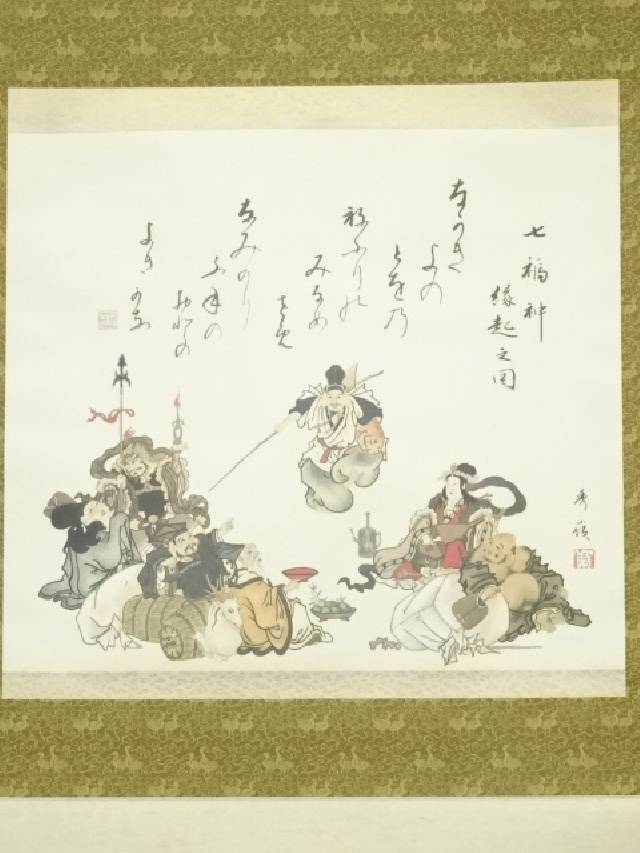 七福神
縁起之図
なかき
よの
とを乃
祢ふりの
みなめ
さめ
なみのり
ふねの
おとの
よき
かな